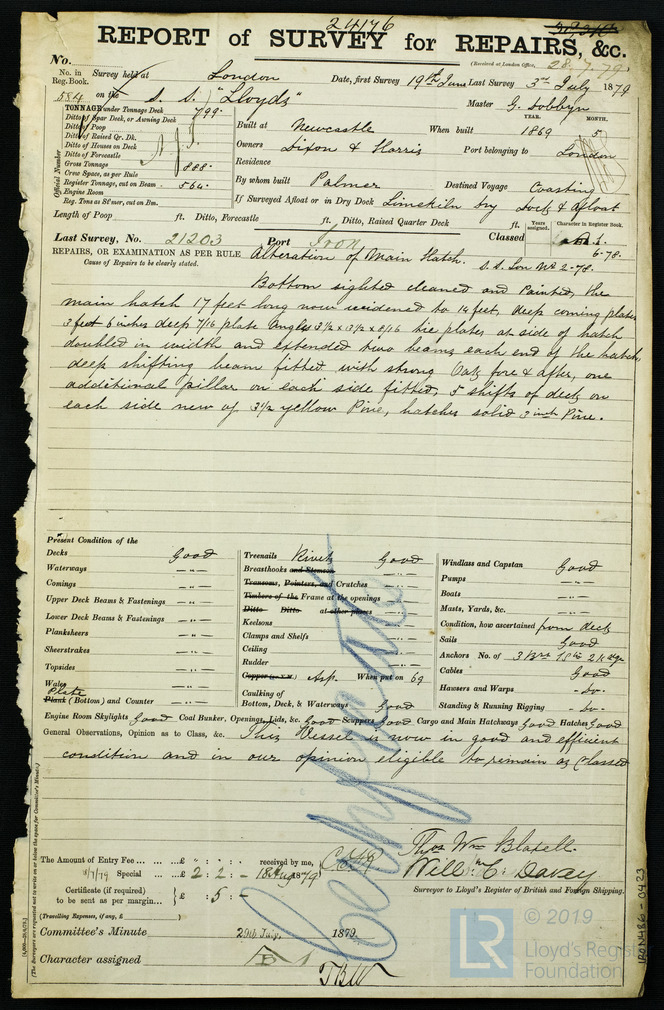 24176
REPORT of SURVEY for REPAIRS, &c.
No.
(Received at London Office, 28.7.79.
No. in Reg. Book. Survey held at London Date, first Survey 19th June Last Survey 3rd July 1879
584 on the S. S. "Lloyds" Master G. Dobbyn
TONNAGE under Tonnage Deck 799.
Ditto of Spar Deck, or Awning Deck
Ditto of Poop
Ditto of Raised Qr. Dk.
Ditto of Houses on Deck
Ditto of Forecastle
Gross Tonnage 888.
Crew Space, as per Rule
Register Tonnage, cut on Beam 564.
Engine Room
Reg. Tons as St'mer, cut on Bm.
Official Number
YEAR. MONTH.
Built at Newcastle When built 1869 5
Owners Dixon & Harris Port belonging to London
Residence
By whom built Palmer Destined Voyage Coasting
If Surveyed Afloat or in Dry Dock Limekiln Dry Dock & Afloat
Length of Poop ft. Ditto, Forecastle ft. Ditto, Raised Quarter Deck ft.
Years assigned. Character in Register Book.
Last Survey, No. 21203 Port Iron Classed
6-78.
S. S. Lon No 2-78.
REPAIRS, OR EXAMINATION AS PER RULE Alteration of Main Hatch.
Cause of Repairs to be clearly stated.
Bottom sighted cleaned and Painted, the
main hatch 17 feet long now widened to 14 feet, deep coming plates
3 feet 6 inches deep 7/16 plate Angles 3½ x 3½ x 8/16 tie plates at side of hatch
doubled in width and extended two beams each end of the hatch,
deep shifting beam fitted with strong fore & after, one
additional pillar on each side fitted, 5 shifts of deck on
each side new of 3½ yellow Pine, hatches solid 3 inch Pine.
Present Condition of the
Decks Good
Waterways — „ —
Comings — „ —
Upper Deck Beams & Fastenings — „ —
Lower Deck Beams & Fastenings — „ —
Planksheers — „ —
Sheerstrakes — „ —
Topsides — „ —
Wales — „ —
Plate
Plank (Bottom) and Counter — „ —
Treenails Rivets Good
Breasthooks and Stemson — „ —
Transoms, Pointers, and Crutches — „ —
Timbers of the Frame at the openings — „ —
Ditto Ditto at other places — „ —
Keelsons — „ —
Clamps and Shelfs — „ —
Ceiling — „ —
Rudder — „ —
Copper (or Y.M.) When put on 69
Caulking of
Bottom, Deck, & Waterways Good
Windlass and Capstan Good
Pumps — „ —
Boats — „ —
Masts, Yards, &c. — „ —
Condition, how ascertained from deck
Sails Good
Anchors No. of 3 Brs
Cables Good
Hawsers and Warps - do -
Standing & Running Rigging - do -
Engine Room Skylights Good Coal Bunker, Openings, Lids, &c. Good Scuppers Good Cargo and Main Hatchways Good Hatches Good
General Observations, Opinion as to Class, &c. This Vessel is now in good and efficient
condition and in our opinion eligible to remain as Classed
The Amount of Entry Fee ... ... ... £ : : received by me,
Special ... £ 2 : 2 : - 18 Aug 1879
Certificate (if required) to be sent as per margin... £ : 5 : -
(Travelling Expenses, if any, £ )
Thos Wm Blaxell.
Will. C. Davey
Surveyor to Lloyd's Register of British and Foreign Shipping.
Committee's Minute 29th July, 1879
Character assigned
(The Surveyors are requested not to write on or below the space for Committee's Minute.)
© 2019
LR
Lloyd's Register
Foundation
IRON486-0423